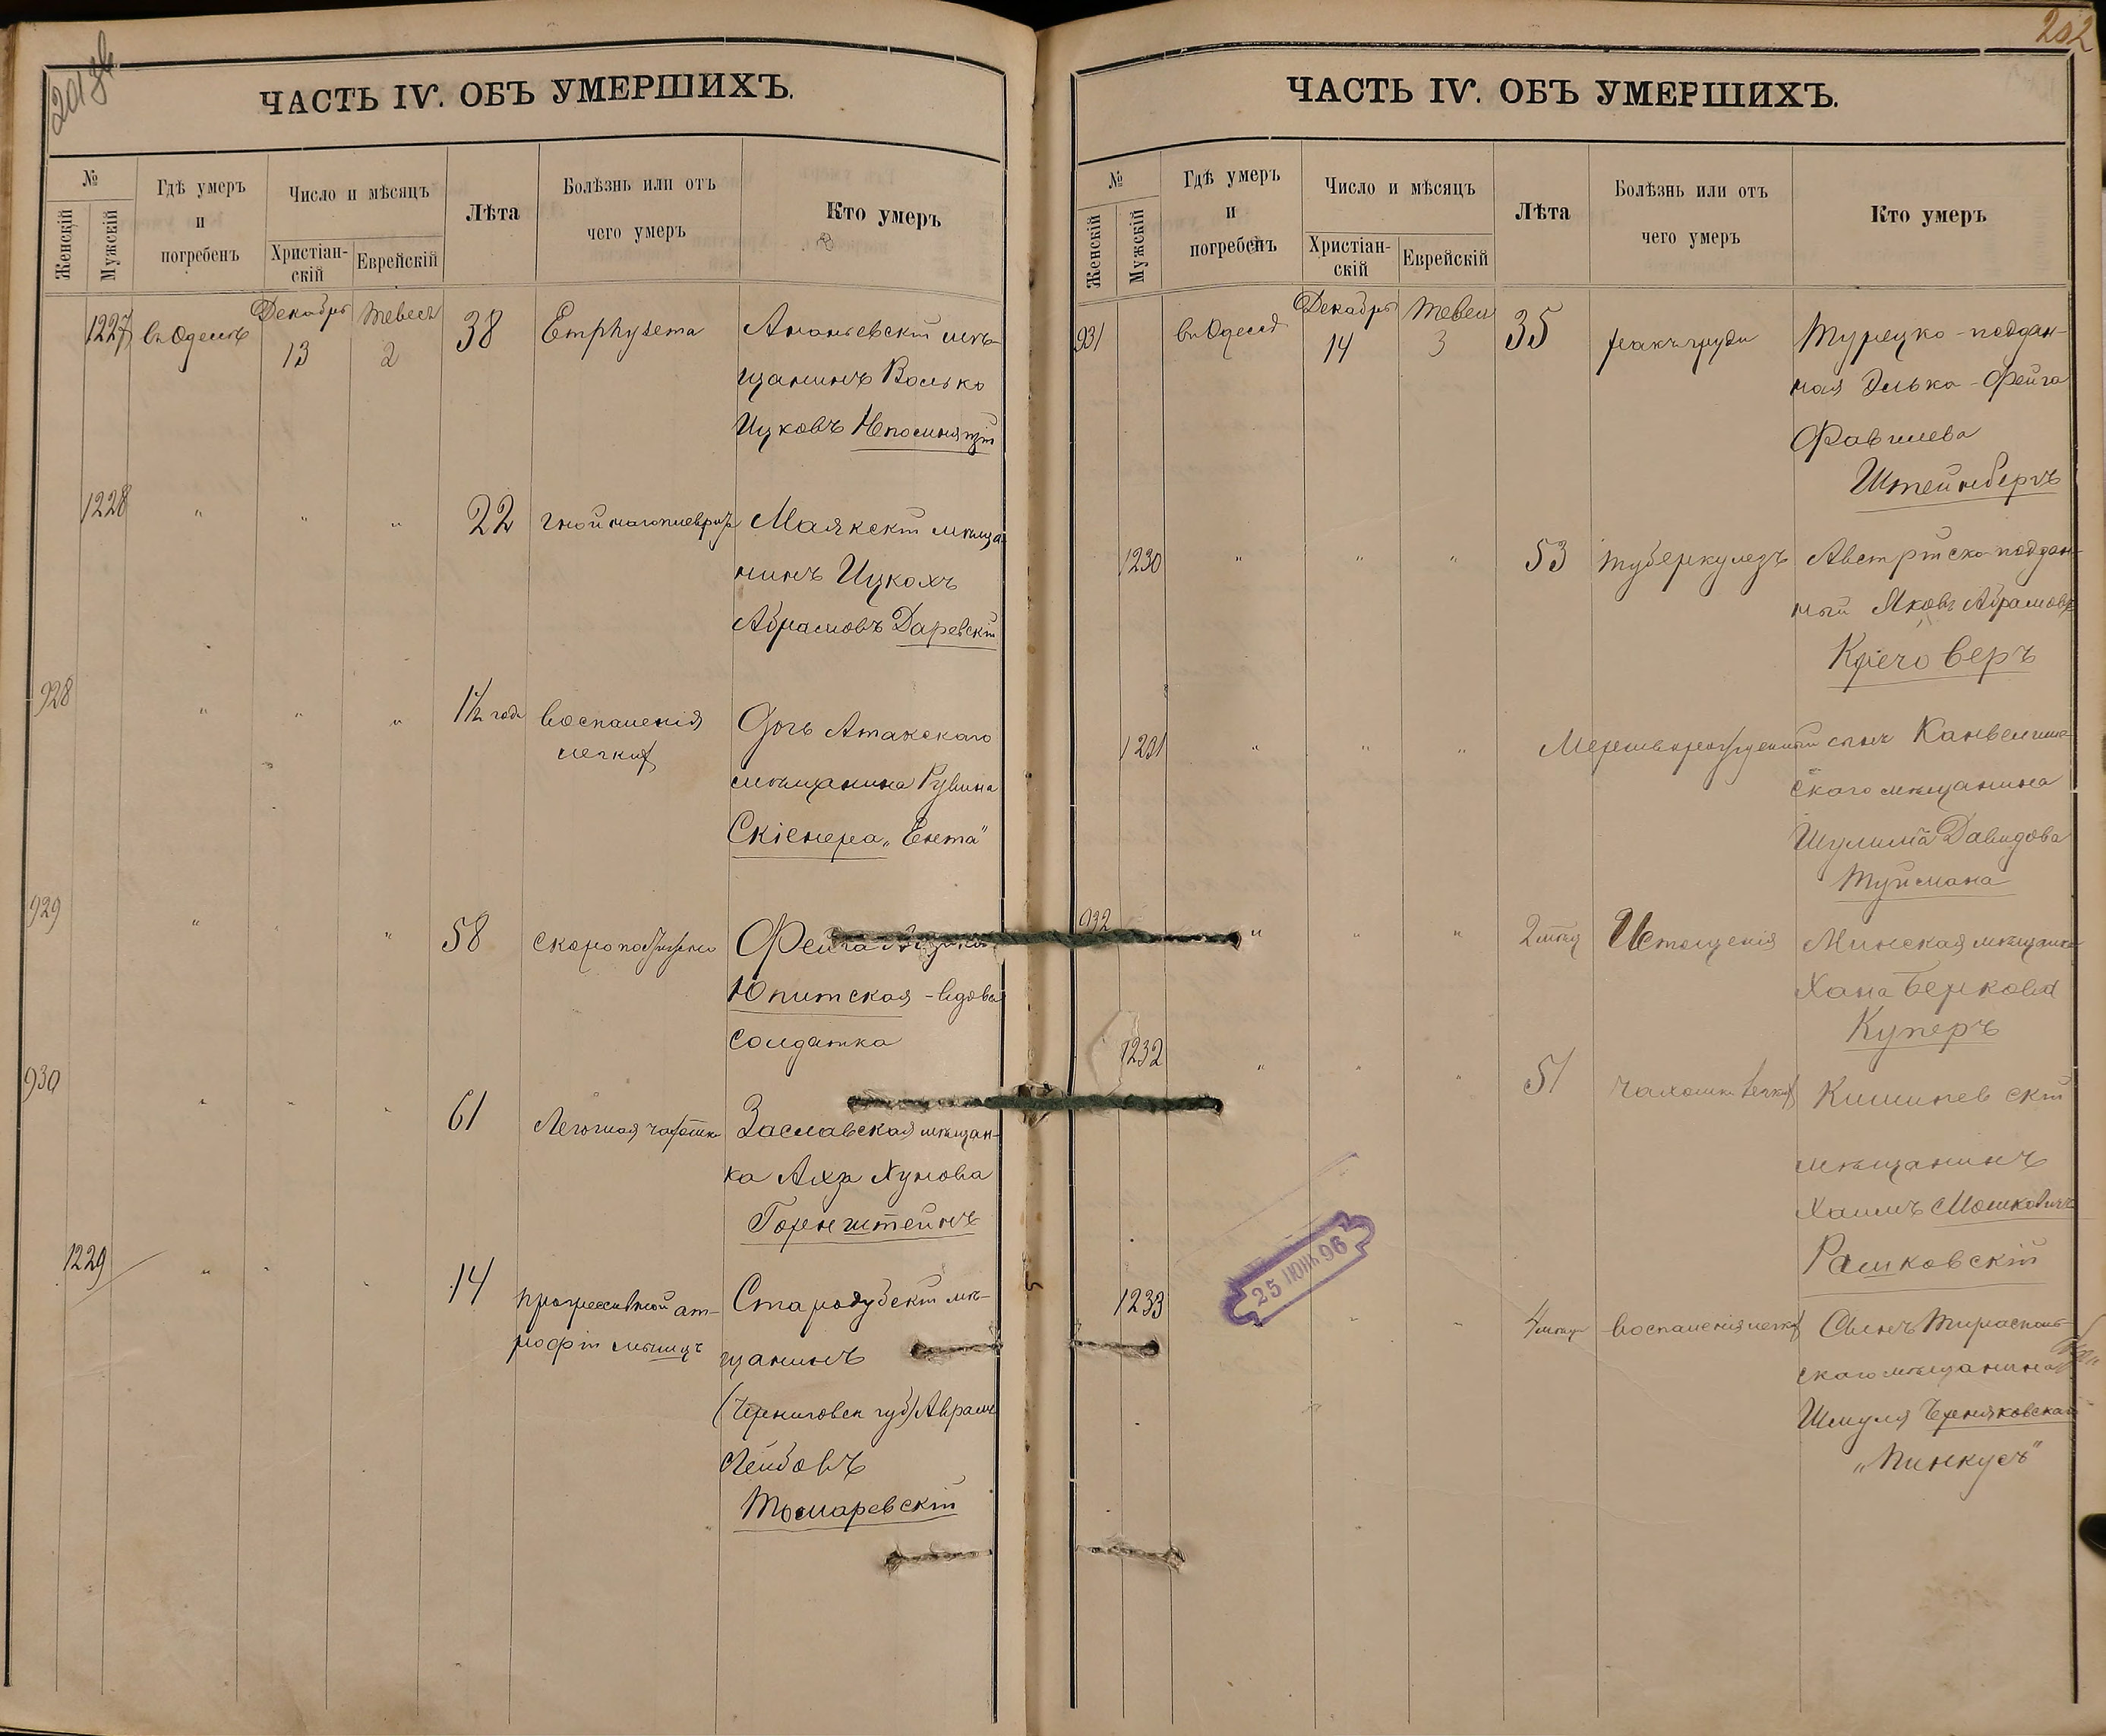 201 об
ЧАСТЬ IV. ОБЪ УМЕРШИХЪ.
№
Женскій
Мужскій
Гдѣ умеръ
и
погребенъ
Число и мѣсяцъ
Христіан-
скій
Еврейскій
Лѣта
Болѣзнь или отъ
чего умеръ
Кто умеръ
1227 въ Одессѣ Декабрь Тевесъ 38 Emphysema Ананьевскій мѣ-
13 2 щанинъ Волько
Ицковъ
1228 " " " 22 гнойнаго плеврита Маякскій мѣща-
нинъ Ицкохъ
Абрамовъ Даревскій
928 " " " 1½ года воспаленія Дочь Атакскаго
легкихъ мѣщанина Рувина
Скіенера „Енета"
929 " " " 58 скоропостижно Фейга
Юпитская - вдова
солдатка
930 " " " 61 Легочная чахотка Заславская мѣщан-
ка Хунова
Горенштейнъ
1229 " " " 14 прогрессивной ат- Стародубскій мѣ-
рофіи мышцъ щанинъ
(Черниговск губ) Аврамъ
Лейбовъ
Томаревскій
202
ЧАСТЬ IV. ОБЪ УМЕРШИХЪ.
№
Женскій
Мужскій
Гдѣ умеръ
и
погребенъ
Число и мѣсяцъ
Христіан-
скій
Еврейскій
Лѣта
Болѣзнь или отъ
чего умеръ
Кто умеръ
931 въ Одессѣ Декабрь Тевес 35 ракъ груди Турецко-поддан-
14 3 ная Элька-Фейга
Фавилева
Штейнбергъ
1230 " " " 53 туберкулезъ Австрійско поддан-
ный Яковъ Абрамовъ
Кричоверъ
1231 " " " Мертворожденный сынъ
скаго мѣщанина
Шулима Давидова
Туйсмана
932 " " " 2 мѣсяц Истощенія Минская мѣщанка
Хана Беркова
Куперъ
1232 " " " 51 чахотки легкихъ Кишиневскій
мѣщанинъ
Хаимъ Мошковичъ
Рашковскій
25 ІЮНЬ 96
1233 " " " 4 мѣсяц воспаленія легкихъ Сынъ Тираспол-
скаго мѣщанина
Шмуля Черняковскаго
„Пинкусъ"